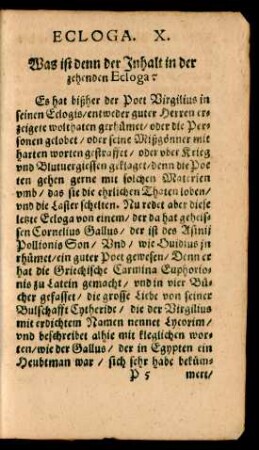 ECLOGA. X.
Was ist denn der Inhalt in der
zehenden Ecloga?
Es hat bißher der Poet Virgilius in
seinen Eclogis/entweder guter Herren er-
zeigete wolthaten gerhümet/oder die Per-
sonen gelobet/oder seine Mißgönner mit
harten worten gestraffet/oder vber Krieg
vnd Blutuergiessen geklaget/denn die Poe-
ten gehen gerne mit solchen Materien
vmb/das sie die ehrlichen Thaten loben/
vnd die Laster schelten. Nu redet aber diese
letzte Ecloga von einem/der da hat geheis-
sen Cornelius Gallus/der ist des Asinij
Pollionis Son/Vnd/wie Ouidius jn
rhümet/ein guter Poet gewesen/Denn er
hat die Griechische Carmina Euphorio-
nis zu Latein gemacht/vnd in vier Bü-
cher gefasset/die grosse Liebe von seiner
Bulschafft Cytheride/die der Virgilius
mit erdichtem Namen nennet Lycorim/
vnd beschreibet alhie mit kleglichen wor-
ten/wie der Gallus/der in Egypten ein
Heubtman war/sich sehr habe beküm-
P 5 mert/